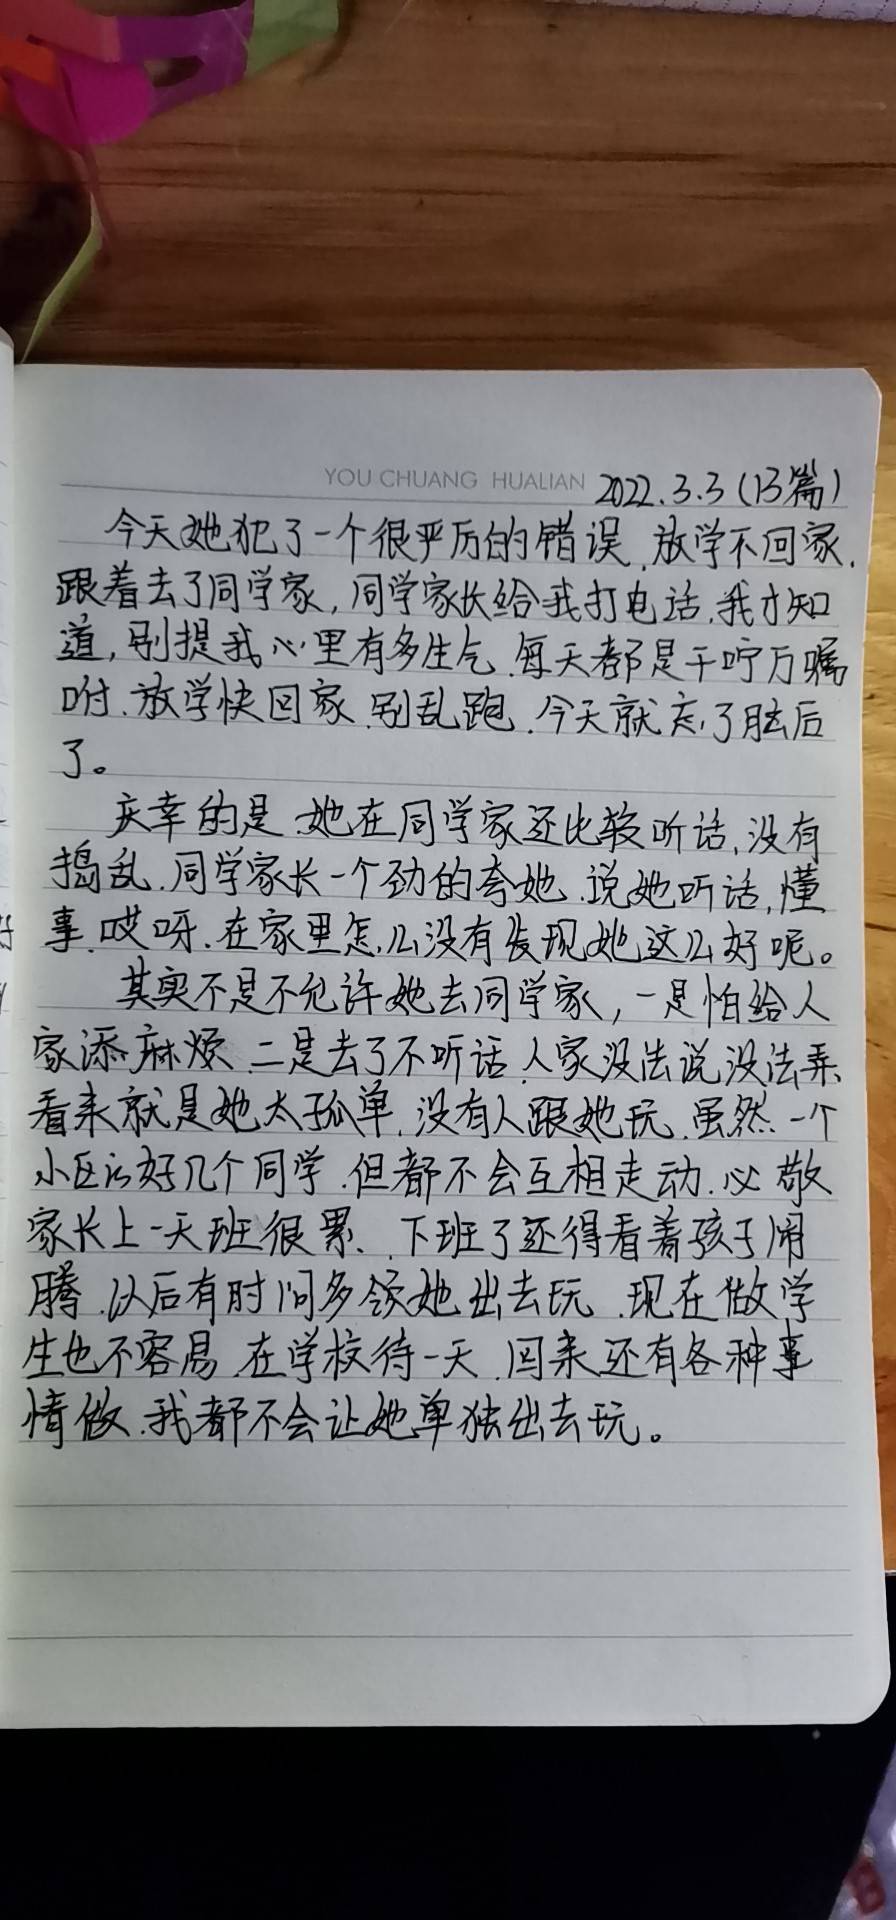 YOU CHUANG HUALIAN 2022.3.3(13篇)
今天她犯了一个很严厉的错误,放学不回家,
跟着去了同学家,同学家长给我打电话,我才知
道,别提我心里有多生气,每天都是千咛万嘱
咐,放学快回家,别乱跑,今天就忘了脑后
了。
庆幸的是,她在同学家还比较听话,没有
捣乱,同学家长一个劲的夸她,说她听话,懂
事,哎呀,在家里怎么没有发现她这么好呢。
其实不是不允许她去同学家,一是怕给人
家添麻烦,二是去了不听话,人家没法说没法弄,
看来就是她太孤单,没有人跟她玩,虽然一个
小区的好几个同学,但都不会互相走动,必敬
家长上一天班很累,下班了还得看着孩子闹
腾,以后有时间多领她出去玩,现在做学
生也不容易,在学校待一天,回来还有各种事
情做,我都不会让她单独出去玩。